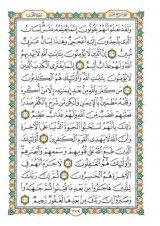 وَلَقَدْ نَعْلَمُ أَنَّهُمْ يَقُولُونَ إِنَّمَا يُعَلِّمُهُ بَشَرٌ لِّسَانُ
الَّذِي يُلْحِدُونَ إِلَيْهِ أَعْجَمِيٌّ وَهَٰذَا لِسَانٌ عَرَبِيٌّ
مُّبِينٌ إِنَّ الَّذِينَ لَا يُؤْمِنُونَ بِآيَاتِ اللَّهِ لَا يَهْدِيهِمُ
اللَّهُ وَلَهُمْ عَذَابٌ أَلِيمٌ إِنَّمَا يَفْتَرِي الْكَذِبَ الَّذِينَ
لَا يُؤْمِنُونَ بِآيَاتِ اللَّهِ وَأُولَٰئِكَ هُمُ الْكَاذِبُونَ
مَن كَفَرَ بِاللَّهِ مِن بَعْدِ إِيمَانِهِ إِلَّا مَنْ أُكْرِهَ
وَقَلْبُهُ مُطْمَئِنٌّ بِالْإِيمَانِ وَلَٰكِن مَّن شَرَحَ بِالْكُفْرِ صَدْرًا
فَعَلَيْهِمْ غَضَبٌ مِّنَ اللَّهِ وَلَهُمْ عَذَابٌ عَظِيمٌ
ذَٰلِكَ بِأَنَّهُمُ اسْتَحَبُّوا الْحَيَاةَ الدُّنْيَا عَلَى الْآخِرَةِ
وَأَنَّ اللَّهَ لَا يَهْدِي الْقَوْمَ الْكَافِرِينَ أُولَٰئِكَ
الَّذِينَ طَبَعَ اللَّهُ عَلَىٰ قُلُوبِهِمْ وَسَمْعِهِمْ وَأَبْصَارِهِمْ
وَأُولَٰئِكَ هُمُ الْغَافِلُونَ لَا جَرَمَ أَنَّهُمْ
فِي الْآخِرَةِ هُمُ الْخَاسِرُونَ ثُمَّ إِنَّ رَبَّكَ
لِلَّذِينَ هَاجَرُوا مِن بَعْدِ مَا فُتِنُوا ثُمَّ جَاهَدُوا
وَصَبَرُوا إِنَّ رَبَّكَ مِن بَعْدِهَا لَغَفُورٌ رَّحِيمٌ
٢٧٩